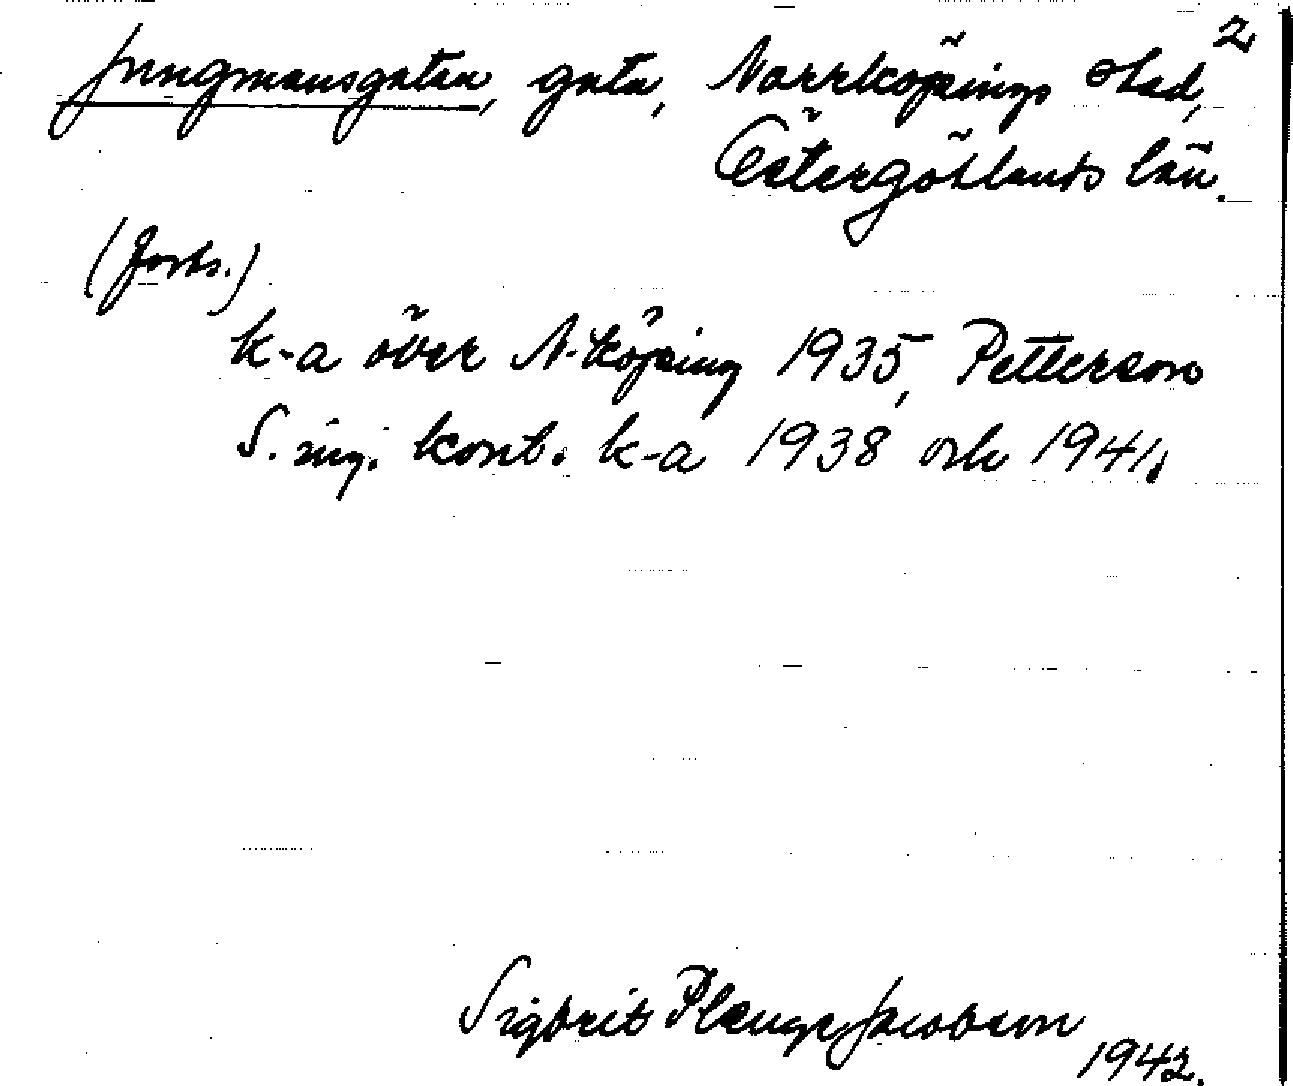 2
Jungmansgatan, gata, Norrköpings stad,
Östergötlands län.
(forts.)
k-a över N-köping 1935, Petterson
S. ing. kont. k-a 1938 och 1941.
Sigbrit Plænge Jacobson
1942.